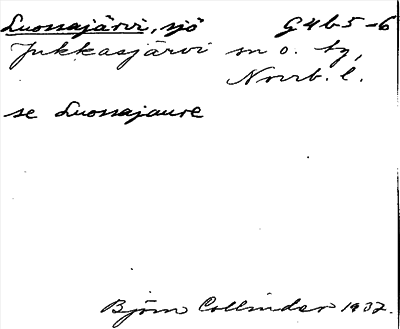 Luossajärvi, sjö G4b5-6
Jukkasjärvi sn o. tg,
Norrb. l.
se Luossajaure
Björn Collinder 1937.